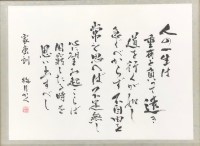 人の一生は
重荷を負って遠き
道を行くが如し
急ぐべからず不自由を
常と思へば不足無し
心に望み起こらば
困窮したる時を
思い出すべし
家康訓